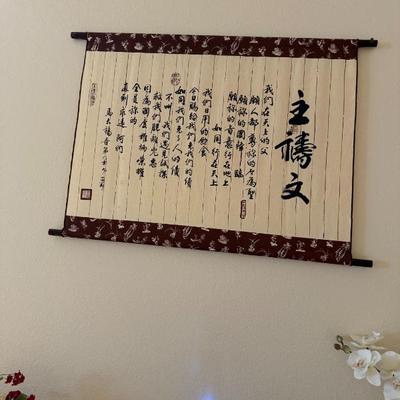 主禱文
我們在天上的父
願人都尊祢的名為聖
願祢的國降臨
願祢的旨意行在地上
如同行在天上
我們日用的飲食
今日賜給我們免我們的債
如同我們免了人的債
不叫我們遇見試探
救我們脫離兇惡
因為國度權柄榮耀
全是祢的
直到永遠 阿們
馬太福音第六章